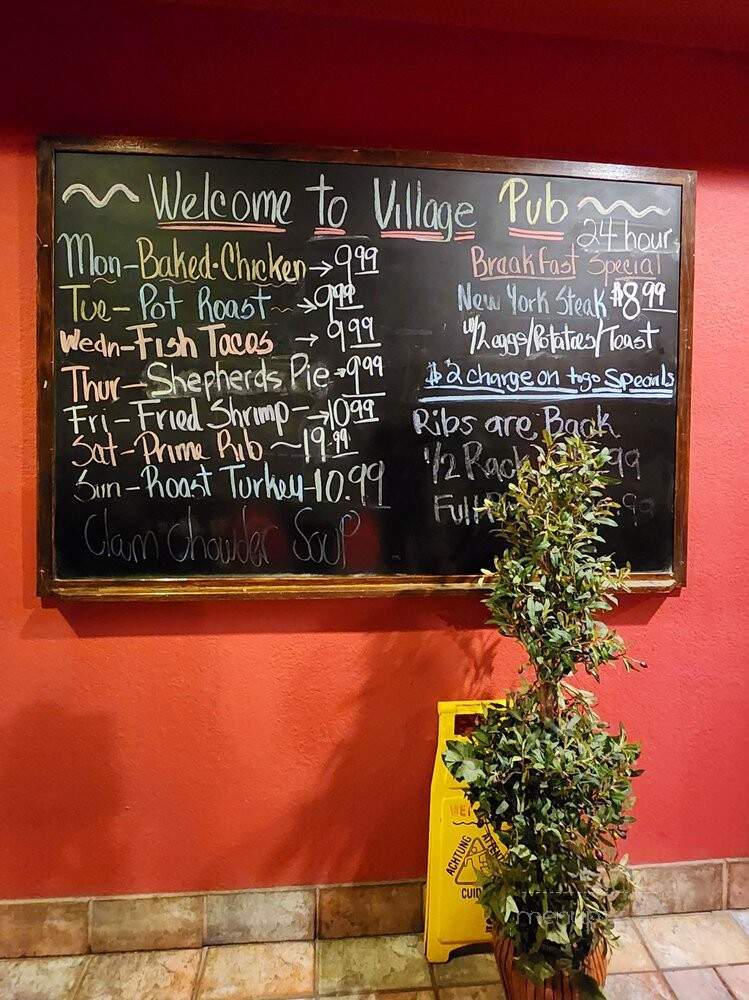 Welcome to Village Pub
Mon-Baked-Chicken → 9.99
Tue-Pot Roast → 9.99
Wedn-Fish Tacos → 9.99
Thur-Shepherds Pie → 9.99
Fri-Fried Shrimp → 10.99
Sat-Prime Rib ~ 19.99
Sun-Roast Turkey-10.99
Clam Chowder Soup
24 hour
Breakfast Special
New York Steak $8.99
w/2 eggs/Potatoes/Toast
$2 charge on togo Specials
Ribs are Back
1/2 Rack 99
Full 99
ACHTUNG